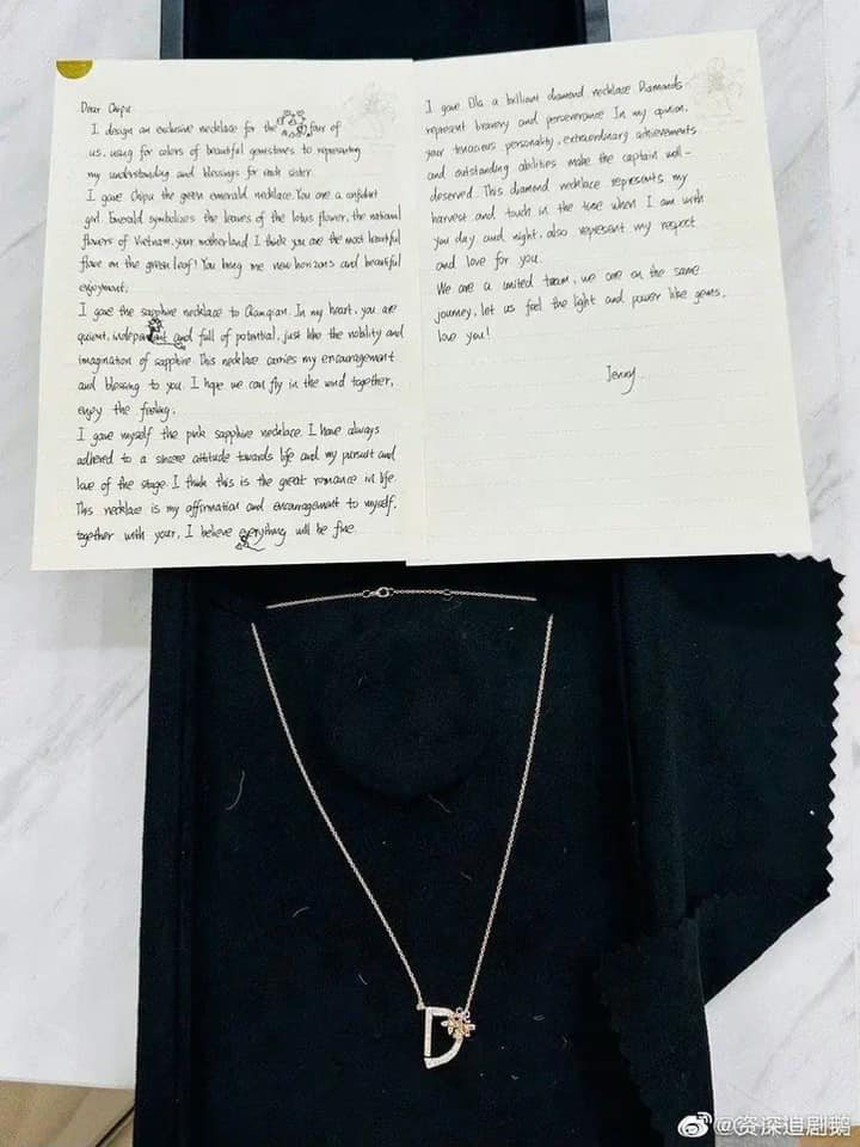 Dear Chipu
I design an exclusive necklace for the four of
us, using for colors of beautiful gemstones to representing
my understanding and blessings for each sister.
I gave Chipu the green emerald necklace. You are a confident
girl. Emerald symbolises the leaves of the lotus flower, the national
flowers of Vietnam, your motherland. I think you are the most beautiful
flowe on the green leaf! You bring me new horizons and beautiful
enjoyment;
I gave the sapphire necklace to Qianqian. In my heart, you are
quient, independent and full of potential, just like the nobility and
imagination of sapphire. This necklace carries my encouragement
and blessing to you. I hope we can fly in the wind together,
enjoy the feeling.
I gave myself the pink sapphire necklace. I have always
adhered to a sincere attitude towards life and my pursuit and
love of the stage. I think this is the great romance in life
This necklace is my affirmation and encouragement to myself,
together with your, I believe everything will be fine.
I gave Ella a brilliant diamond necklace Diamonds
represent bravery and perseverance In my opinion,
your tenacious personality, extraordinary achievements
and outstanding abilities make the captain well-
deserved. This diamond necklace represents my
harvest and touch in the time when I am with
you day and night, also represent my respect
and love for you.
We are a united team, we are on the same
journey, let us feel the light and power like gems,
love you!
Jenny
D
@资深追剧鹅